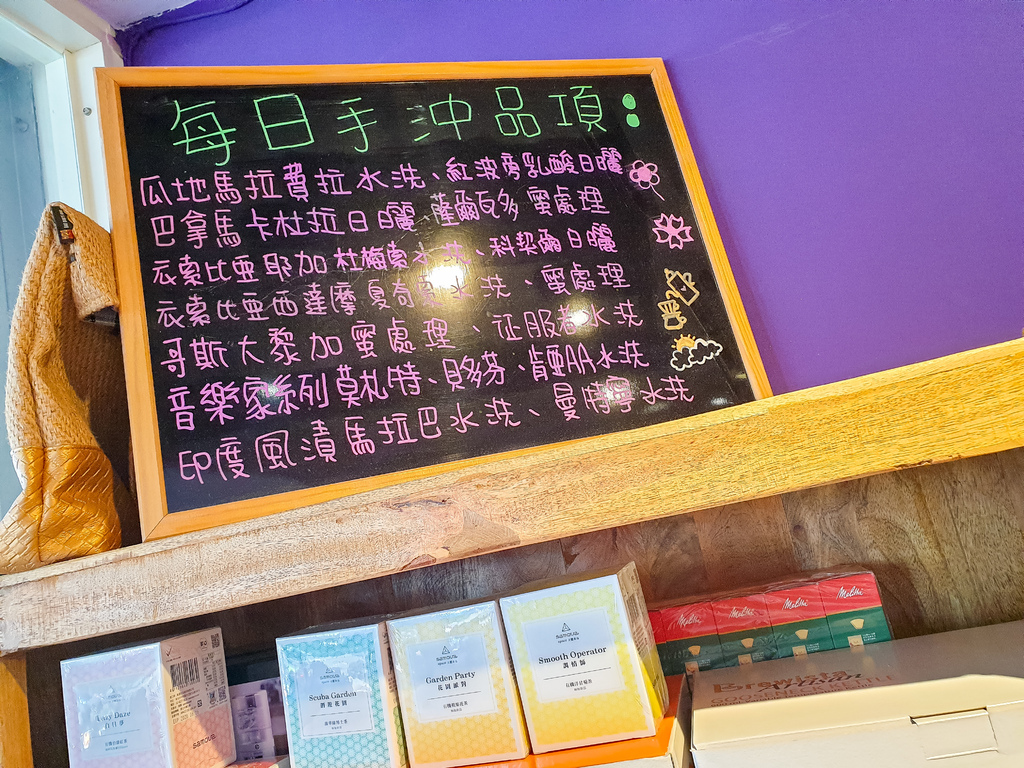 每日手沖品項：
瓜地馬拉費拉水洗、紅波旁乳酸日曬
巴拿馬卡杜拉日曬、薩爾瓦多蜜處理
衣索比亞耶加杜梅索水洗、科契爾日曬
衣索比亞西達摩夏奇索水洗、蜜處理
哥斯大黎加蜜處理、征服者水洗
音樂家系列莫札特、貝多芬、肯亞AA水洗
印度風漬馬拉巴水洗、曼特寧水洗
Lazy Daze
白日夢
samova
samova
Scuba Garden
潛遊花園
samova
Garden Party
花園派對
samova
Smooth Operator
調情師
Melitta
Melitta
Melitta
Melitta